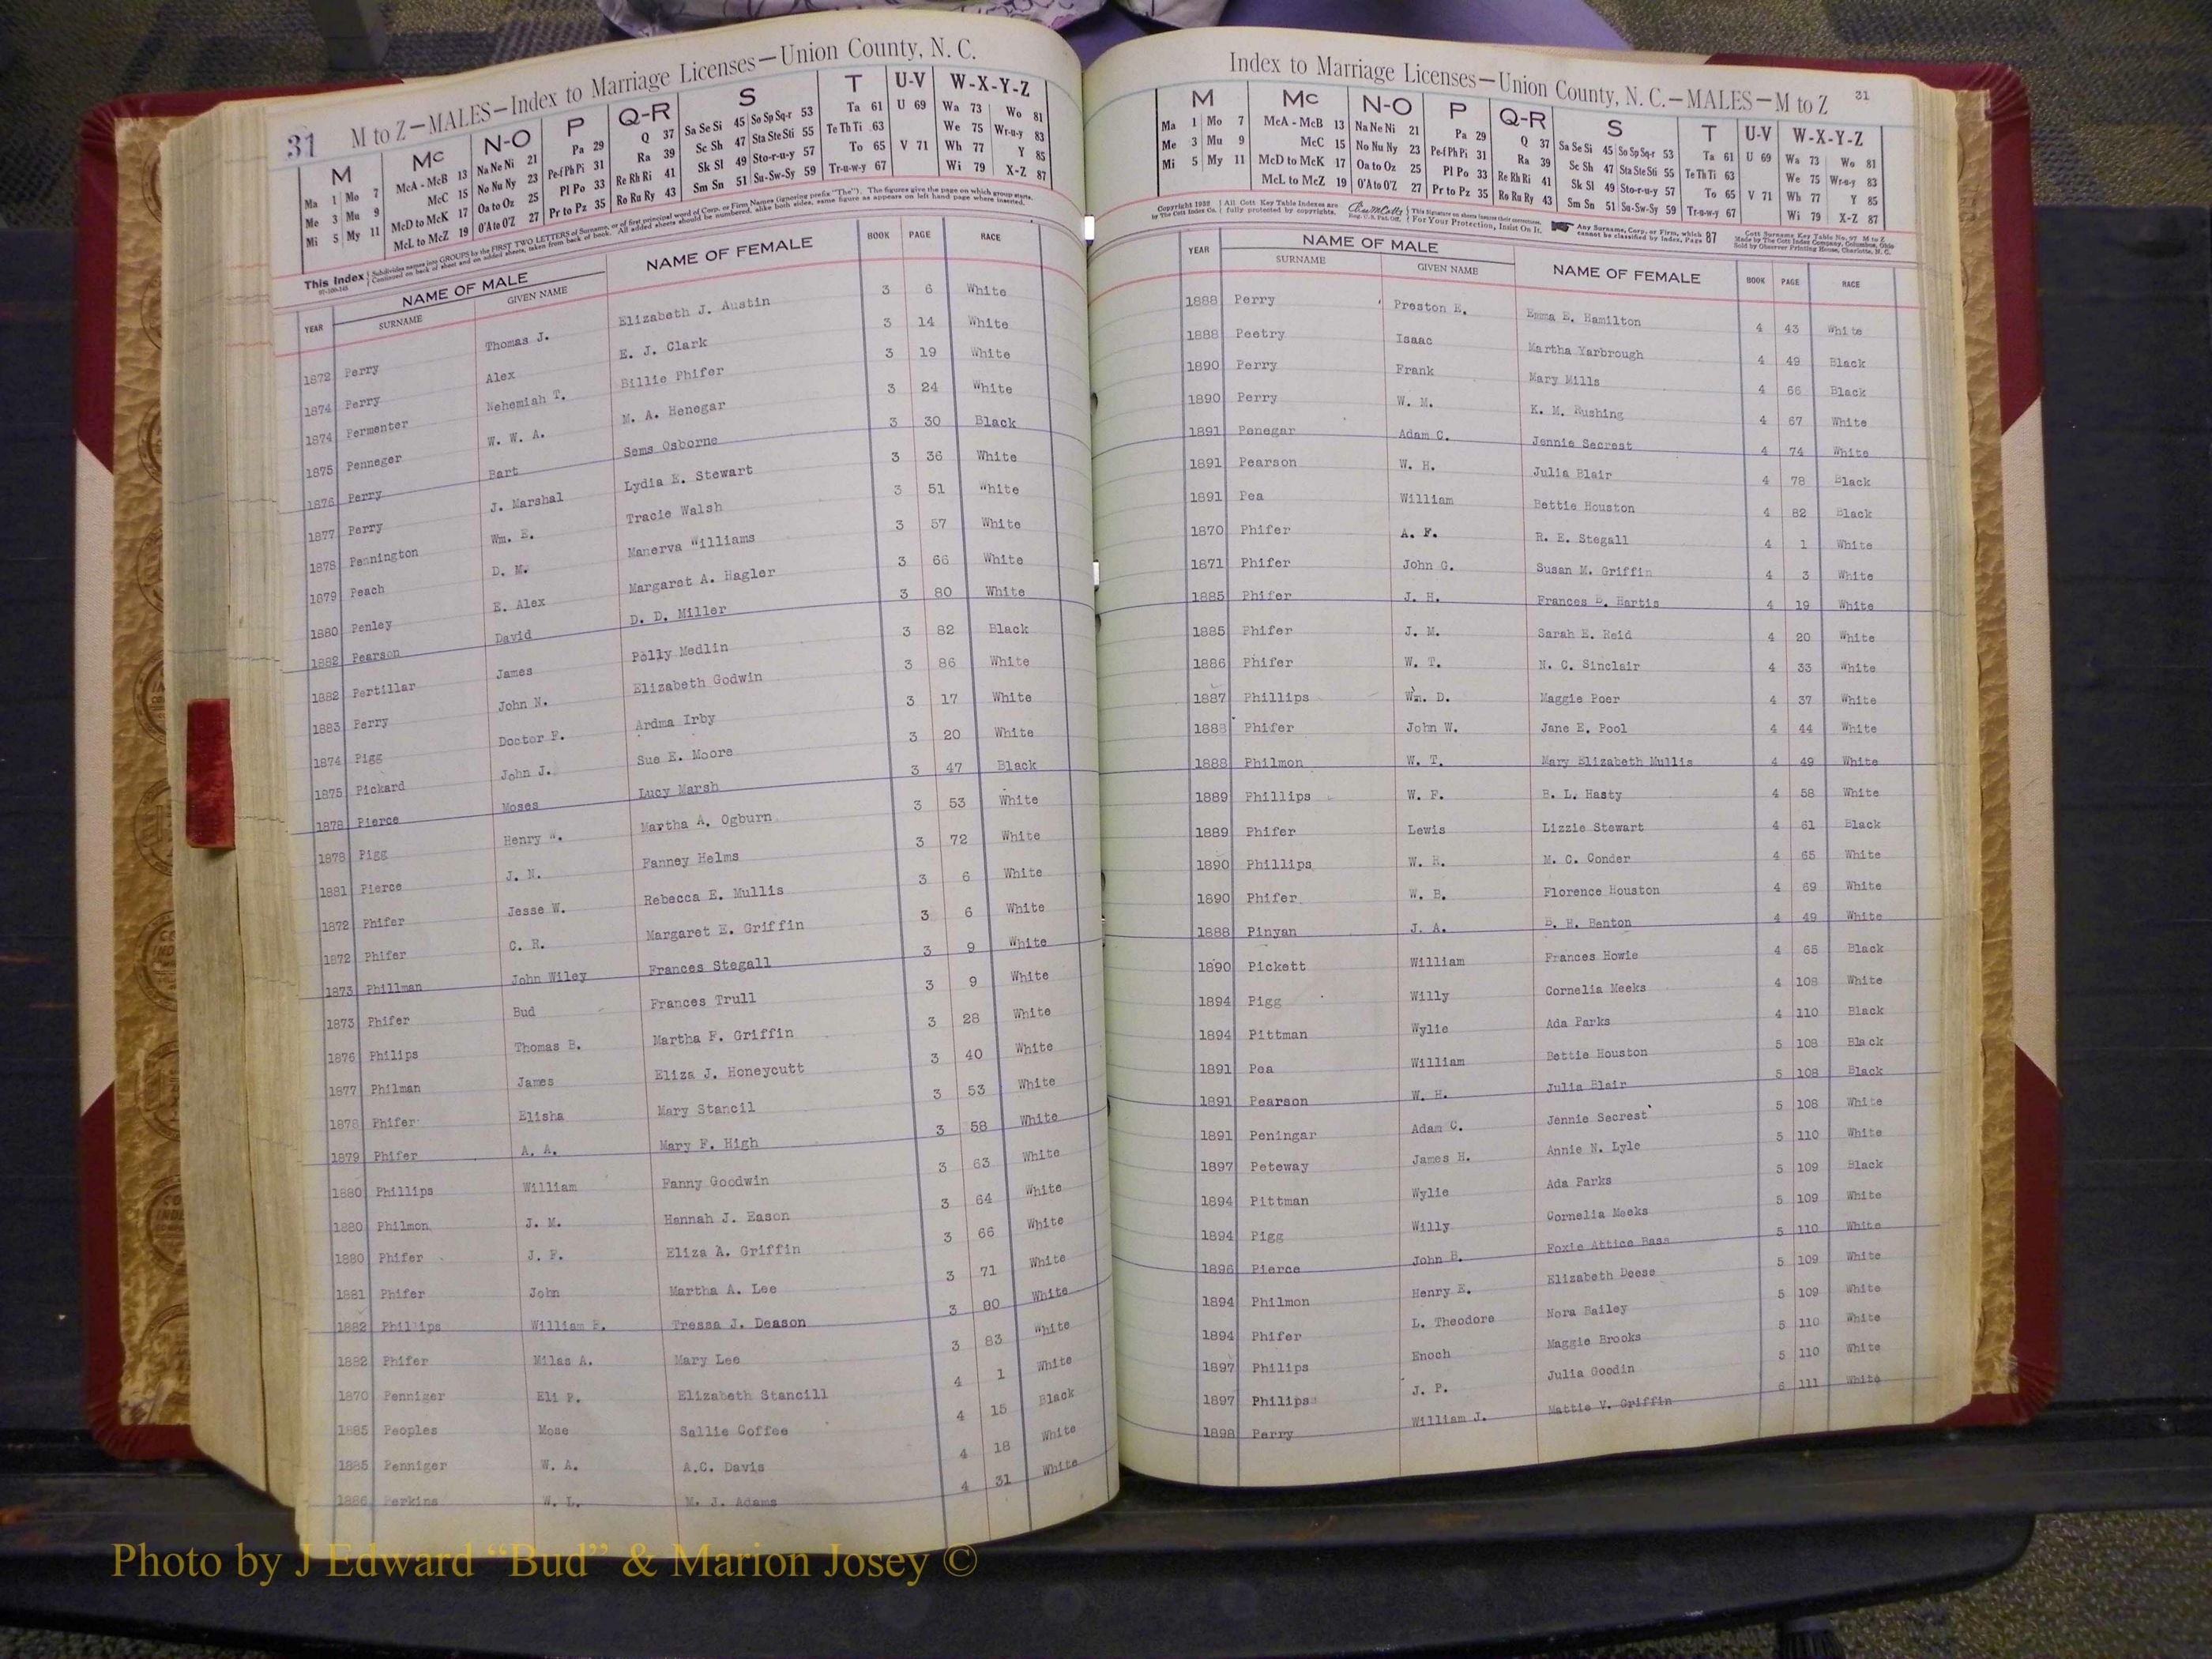 31 M to Z—MALES—Index to Marriage Licenses—Union County, N. C.
M Mc N-O P Q-R S T U-V W-X-Y-Z
Ma 1 Mo 7 McA - McB 13 Na Ne Ni 21 Pa 29 Q 37 Sa Se Si 45 So Sp Sq-r 53 Ta 61 U 69 Wa 73 Wo 81
Me 3 Mu 9 McC 15 No Nu Ny 23 Pe-f Ph Pi 31 Ra 39 Sc Sh 47 Sta Ste Sti 55 Te Th Ti 63 We 75 Wr-u-y 83
Mi 5 My 11 McD to McK 17 Oa to Oz 25 Pl Po 33 Re Rh Ri 41 Sk Sl 49 Sto-r-u-y 57 To 65 V 71 Wh 77 Y 85
McL to McZ 19 O'A to O'Z 27 Pr to Pz 35 Ro Ru Ry 43 Sm Sn 51 Su-Sw-Sy 59 Tr-u-w-y 67 Wi 79 X-Z 87
This Index Subdivides names into GROUPS by the FIRST TWO LETTERS of Surname, or of first principal word of Corp. or Firm Names (ignoring prefix "The"). The figures give the page on which group starts.
Continued on back of sheet and on added sheets, taken from back of book. All added sheets should be numbered, alike both sides, same figure as appears on left hand page where inserted.
YEAR NAME OF MALE SURNAME GIVEN NAME NAME OF FEMALE BOOK PAGE RACE
1872 Perry Thomas J. Elizabeth J. Austin 3 6 White
1874 Perry Alex E. J. Clark 3 14 White
1874 Permenter Nehemiah T. Billie Phifer 3 19 White
1875 Penneger W. W. A. M. A. Henegar 3 24 White
1876 Perry Bart Sems Osborne 3 30 Black
1877 Perry J. Marshal Lydia E. Stewart 3 36 White
1878 Pennington Wm. E. Tracie Walsh 3 51 White
1879 Peach D. M. Manerva Williams 3 57 White
1880 Penley E. Alex Margaret A. Hagler 3 66 White
1882 Pearson David D. D. Miller 3 80 White
1882 Pertillar James Polly Medlin 3 82 Black
1883 Perry John N. Elizabeth Godwin 3 86 White
1874 Pigg Doctor F. Ardma Irby 3 17 White
1875 Pickard John J. Sue E. Moore 3 20 White
1878 Pierce Moses Lucy Marsh 3 47 Black
1878 Pigg Henry W. Martha A. Ogburn 3 53 White
1881 Pierce J. N. Fanney Helms 3 72 White
1872 Phifer Jesse W. Rebecca E. Mullis 3 6 White
1872 Phifer C. R. Margaret E. Griffin 3 6 White
1873 Phillman John Wiley Frances Stegall 3 9 White
1873 Phifer Bud Frances Trull 3 9 White
1876 Philips Thomas B. Martha F. Griffin 3 28 White
1877 Philman James Eliza J. Honeycutt 3 40 White
1878 Phifer Elisha Mary Stancil 3 53 White
1879 Phifer A. A. Mary F. High 3 58 White
1880 Phillips William Fanny Goodwin 3 63 White
1880 Philmon J. M. Hannah J. Eason 3 64 White
1880 Phifer J. P. Eliza A. Griffin 3 66 White
1881 Phifer John Martha A. Lee 3 71 White
1882 Phillips William P. Tressa J. Deason 3 80 White
1882 Phifer Milas A. Mary Lee 3 83 White
1870 Penniger Eli P. Elizabeth Stancill 4 1 White
1885 Peoples Mose Sallie Coffee 4 15 Black
1885 Penniger W. A. A.C. Davis 4 18 White
1886 Perkins W. L. M. J. Adams 4 31 White
Index to Marriage Licenses—Union County, N. C.—MALES—M to Z 31
M Mc N-O P Q-R S T U-V W-X-Y-Z
Ma 1 Mo 7 McA - McB 13 Na Ne Ni 21 Pa 29 Q 37 Sa Se Si 45 So Sp Sq-r 53 Ta 61 U 69 Wa 73 Wo 81
Me 3 Mu 9 McC 15 No Nu Ny 23 Pe-f Ph Pi 31 Ra 39 Sc Sh 47 Sta Ste Sti 55 Te Th Ti 63 We 75 Wr-u-y 83
Mi 5 My 11 McD to McK 17 Oa to Oz 25 Pl Po 33 Re Rh Ri 41 Sk Sl 49 Sto-r-u-y 57 To 65 V 71 Wh 77 Y 85
McL to McZ 19 O'A to O'Z 27 Pr to Pz 35 Ro Ru Ry 43 Sm Sn 51 Su-Sw-Sy 59 Tr-u-w-y 67 Wi 79 X-Z 87
Copyright 1932 by The Cott Index Co. All Cott Key Table Indexes are fully protected by copyrights. For Your Protection, Insist On It. Any Surname, Corp. or Firm, which cannot be classified by Index, Page 87
YEAR NAME OF MALE SURNAME GIVEN NAME NAME OF FEMALE BOOK PAGE RACE
1888 Perry Preston E. Emma E. Hamilton 4 43 White
1888 Peetry Isaac Martha Yarbrough 4 49 Black
1890 Perry Frank Mary Mills 4 66 Black
1890 Perry W. M. K. M. Rushing 4 67 White
1891 Penegar Adam C. Jennie Secrest 4 74 White
1891 Pearson W. H. Julia Blair 4 78 Black
1891 Pea William Bettie Houston 4 82 Black
1870 Phifer A. F. R. E. Stegall 4 1 White
1871 Phifer John G. Susan M. Griffin 4 3 White
1885 Phifer J. H. Frances E. Hartis 4 19 White
1885 Phifer J. M. Sarah E. Reid 4 20 White
1886 Phifer W. T. N. C. Sinclair 4 33 White
1887 Phillips Wm. D. Maggie Poer 4 37 White
1888 Phifer John W. Jane E. Pool 4 44 White
1888 Philmon W. T. Mary Elizabeth Mullis 4 49 White
1889 Phillips W. F. B. L. Hasty 4 58 White
1889 Phifer Lewis Lizzie Stewart 4 61 Black
1890 Phillips W. R. M. C. Conder 4 65 White
1890 Phifer W. B. Florence Houston 4 69 White
1888 Pinyan J. A. B. H. Benton 4 49 White
1890 Pickett William Frances Howie 4 65 Black
1894 Pigg Willy Cornelia Meeks 4 108 White
1894 Pittman Wylie Ada Parks 4 110 Black
1891 Pea William Bettie Houston 5 108 Black
1891 Pearson W. H. Julia Blair 5 108 Black
1891 Peningar Adam C. Jennie Secrest 5 108 White
1897 Peteway James H. Annie N. Lyle 5 110 White
1894 Pittman Wylie Ada Parks 5 109 Black
1894 Pigg Willy Cornelia Meeks 5 109 White
1896 Pierce John B. Foxie Attice Bass 5 110 White
1894 Philmon Henry E. Elizabeth Deese 5 109 White
1894 Phifer L. Theodore Nora Bailey 5 109 White
1897 Philips Enoch Maggie Brooks 5 110 White
1897 Philips J. P. Julia Goodin 5 110 White
1898 Perry William J. Mattie V. Griffin 6 111 White
Photo by J Edward “Bud” & Marion Josey ©